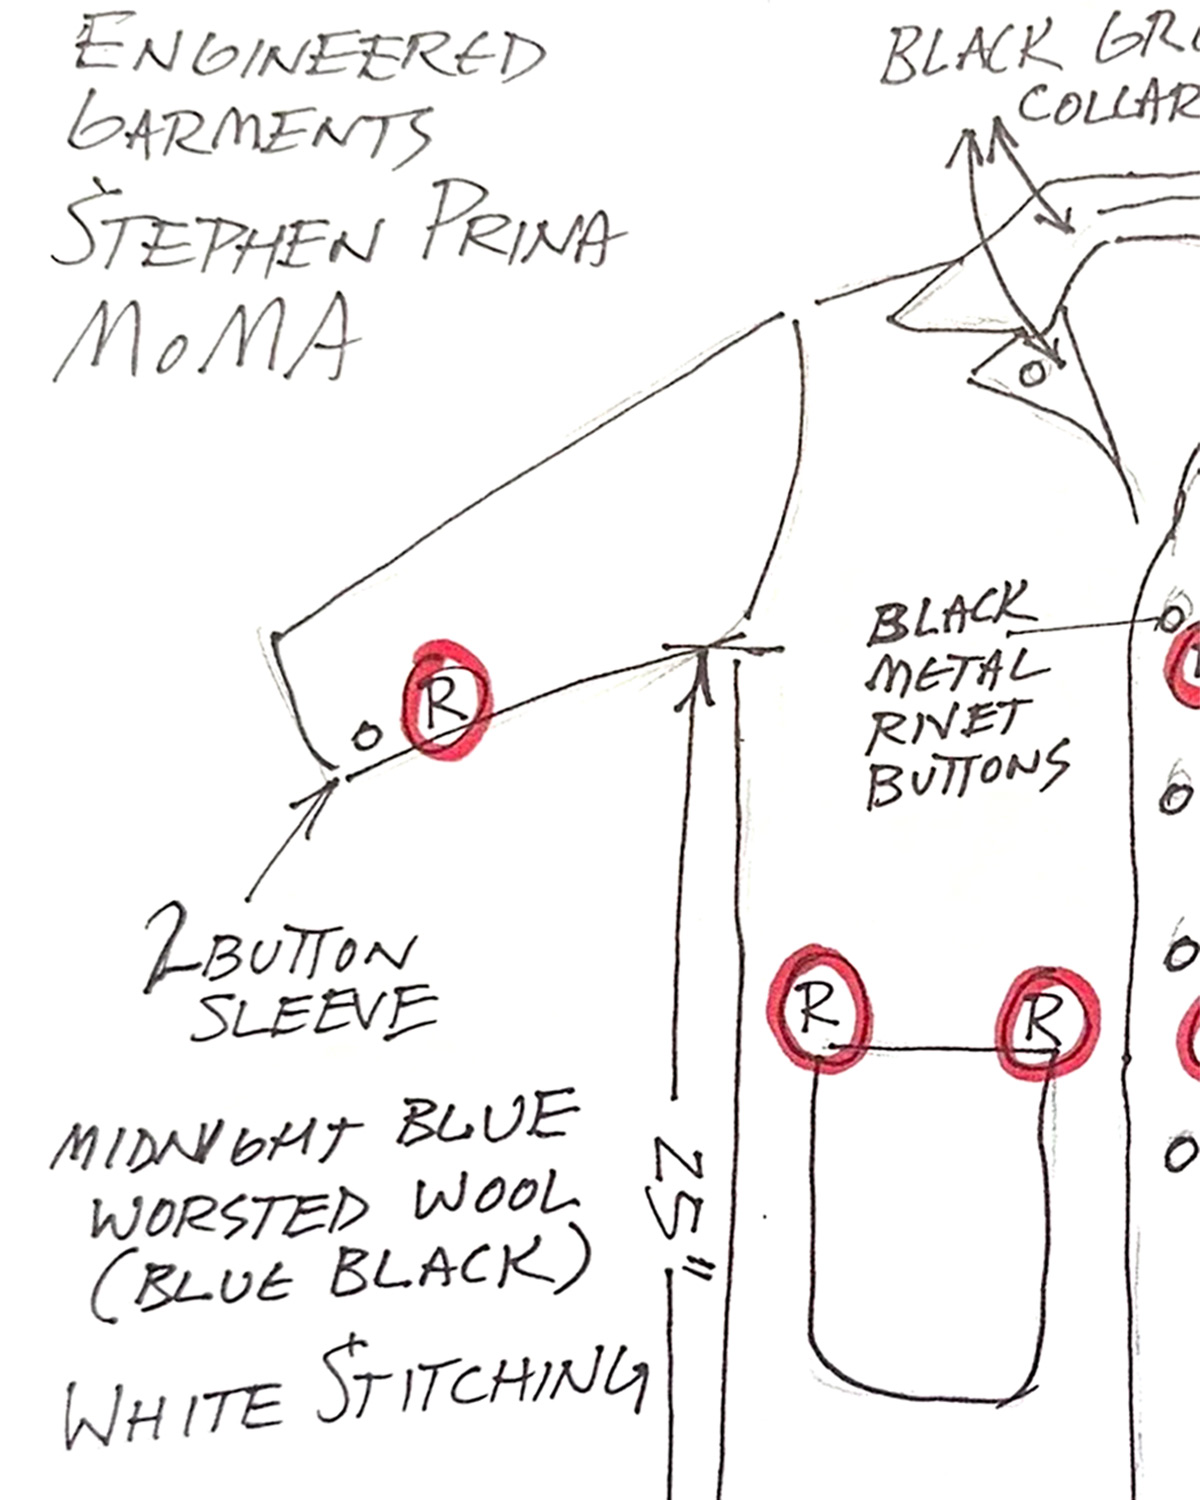 ENGINEERED
GARMENTS
STEPHEN PRINA
MOMA
BLACK
COLLAR
BLACK
METAL
RIVET
BUTTONS
R
2 BUTTON
SLEEVE
R
R
MIDNIGHT BLUE
WORSTED WOOL
(BLUE BLACK)
WHITE STITCHING
25"